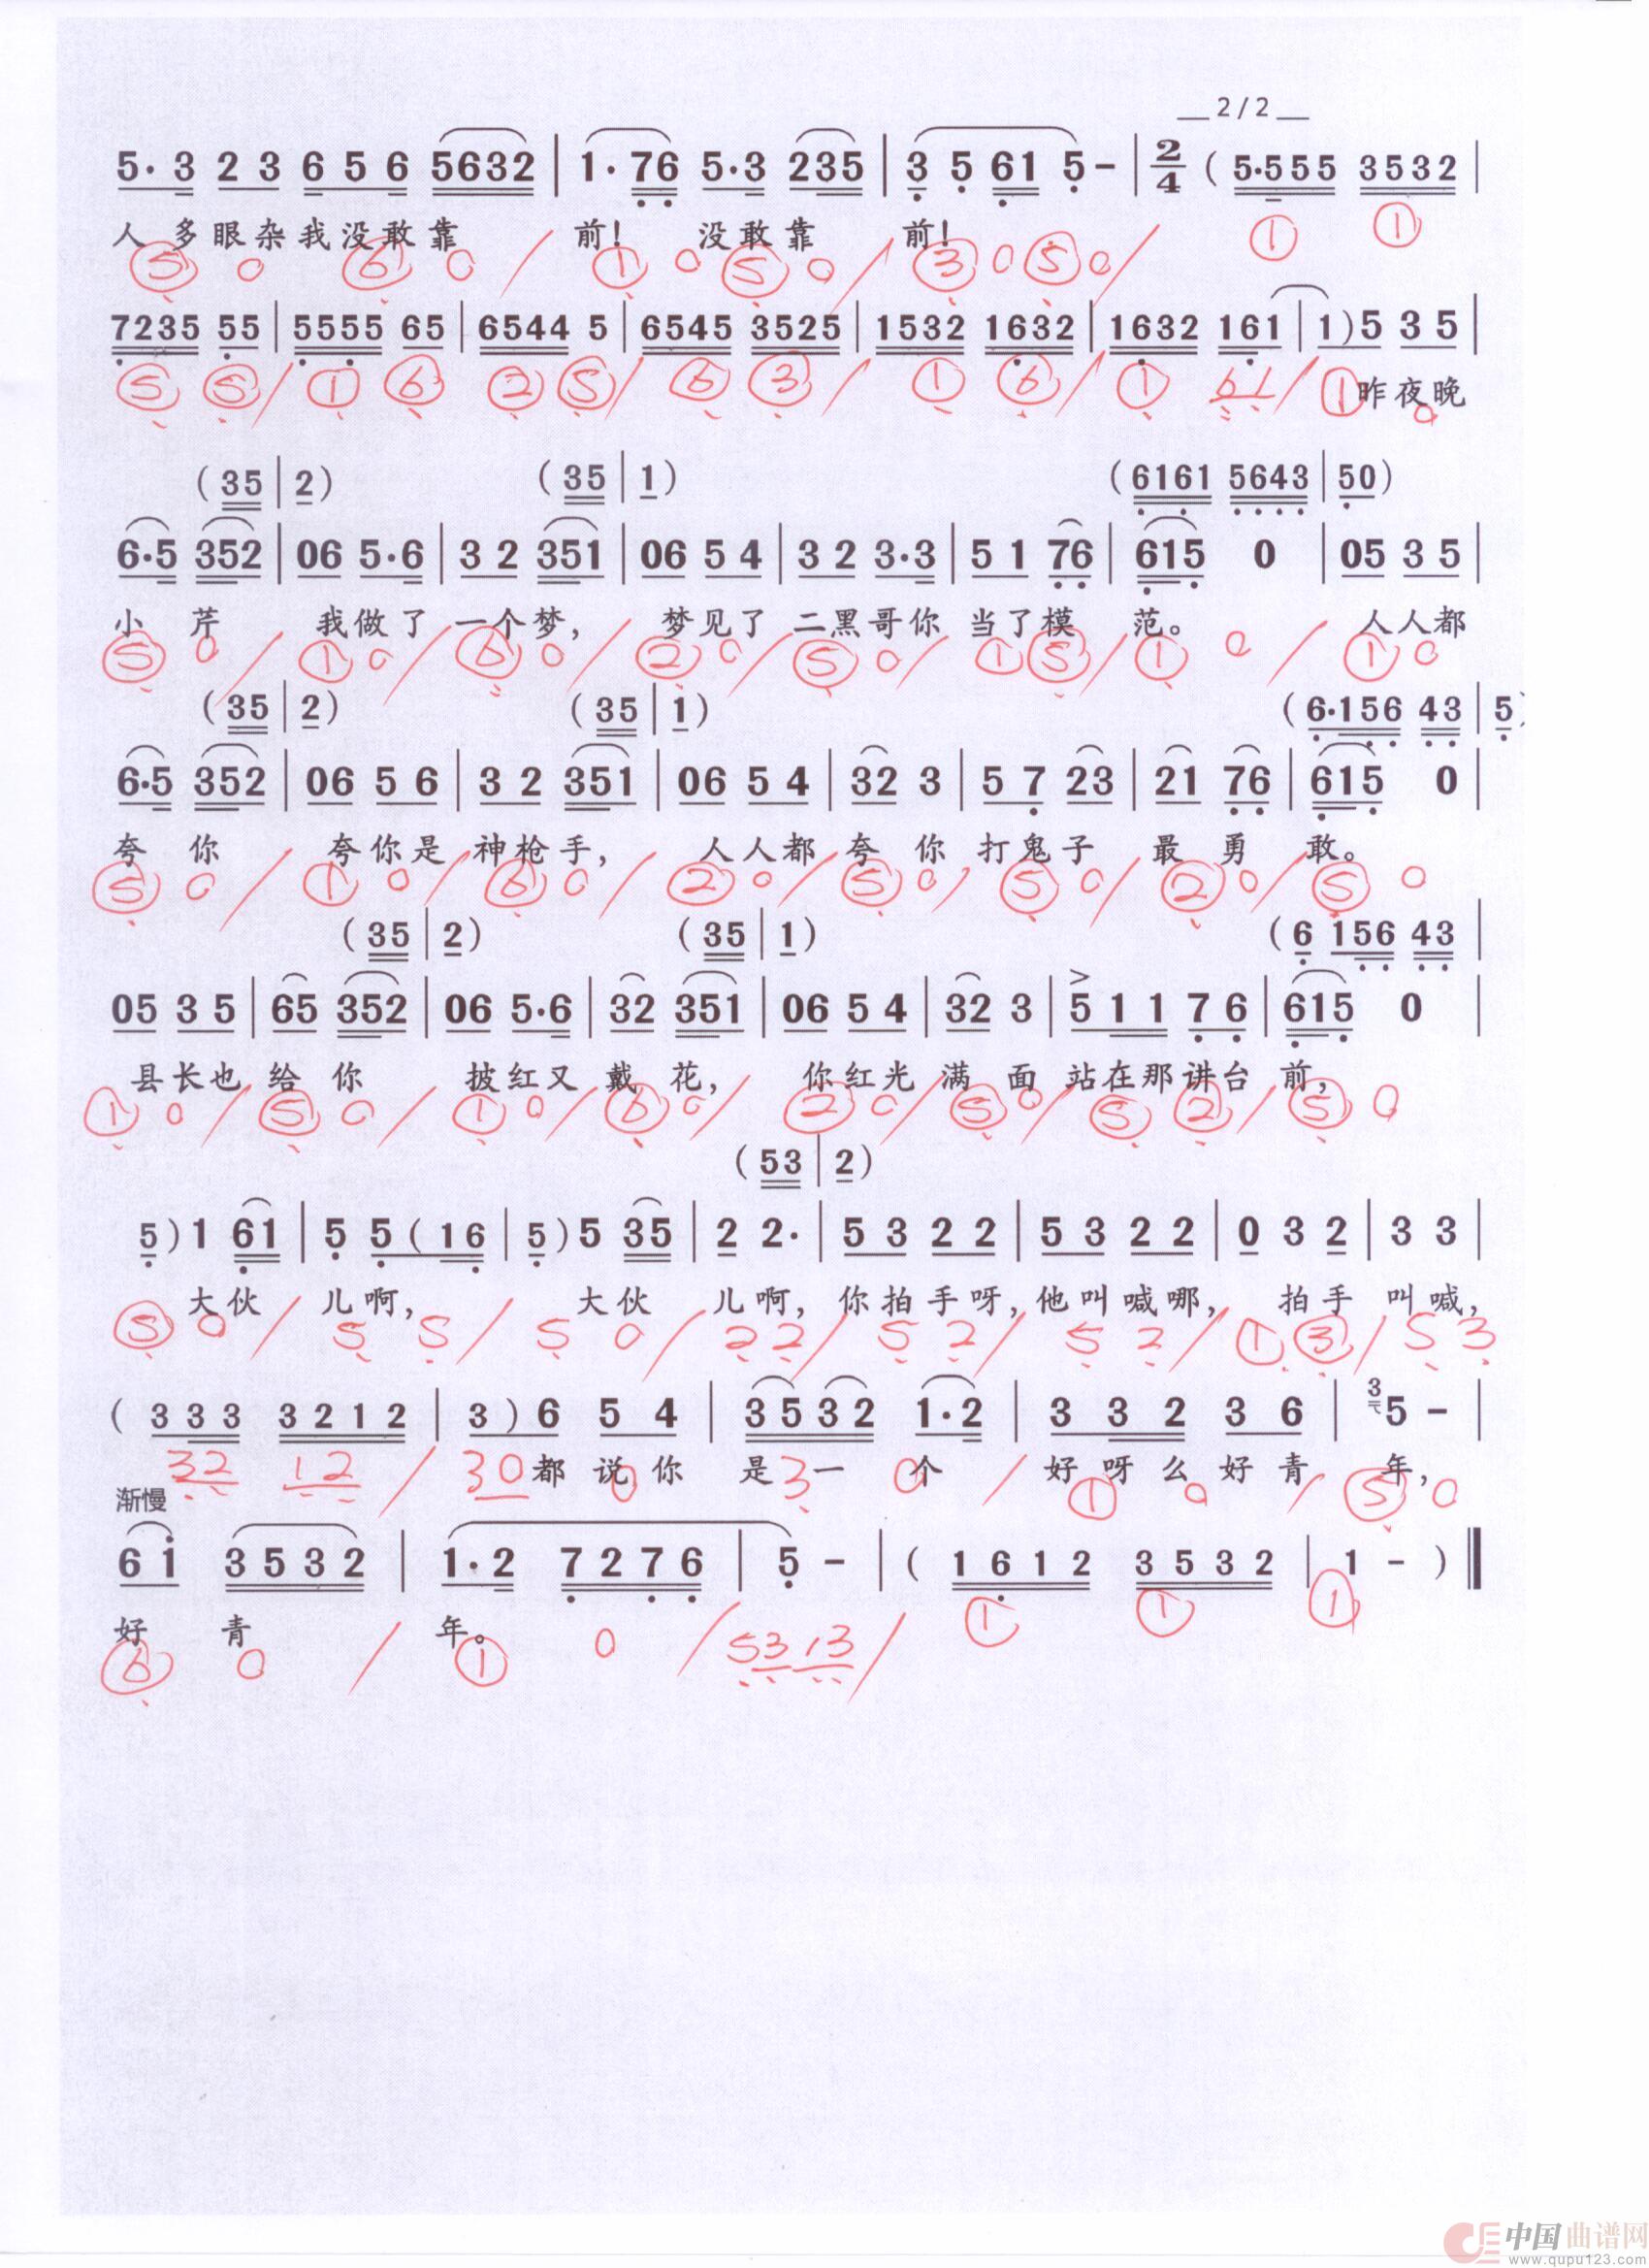 2 / 2
5· 3 2 3 6 5 6 5632 | 1· 76 5·3 235 | 3 5 61 5 - | 2/4 ( 5·555 3532 |
人 多 眼 杂 我 没 敢 靠 前！ 没 敢 靠 前！ ① ①
⑤ 0 ⑥ 0 / ① 0 ⑤ 0 / ③ 0 ⑤ 0 /
7235 55 | 5555 65 | 6544 5 | 6545 3525 | 1532 1632 | 1632 161 | 1 ) 5 3 5 |
⑤ ⑤ / ① ⑥ ② ⑤ / ⑥ ③ / ① ⑥ / ① 61 / ① 昨夜晚
0
( 35 | 2 ) ( 35 | 1 ) ( 6161 5643 | 50 )
6·5 352 | 06 5·6 | 3 2 351 | 06 5 4 | 3 2 3·3 | 5 1 76 | 615 0 | 05 3 5 |
小 芹 我做了 一个梦， 梦见了 二黑哥你 当了模 范。 人人都
⑤ 0 / ① 0 / ⑥ 0 / ② 0 / ⑤ 0 / ① ⑤ / ① 0 / ① 0
( 35 | 2 ) ( 35 | 1 ) ( 6·156 43 | 5 )
6·5 352 | 06 5 6 | 3 2 351 | 06 5 4 | 32 3 | 5 7 23 | 21 76 | 615 0 |
夸 你 夸你是 神枪手， 人人都 夸 你 打鬼子 最 勇 敢。
⑤ 0 / ① 0 / ⑥ 0 / ② 0 / ⑤ 0 / ⑤ 0 / ② 0 / ⑤ 0
( 35 | 2 ) ( 35 | 1 ) ( 6 156 43 |
05 3 5 | 65 352 | 06 5·6 | 32 351 | 06 5 4 | 32 3 | > 5 1 1 7 6 | 615 0 |
县长也 给 你 披红又 戴 花， 你红光 满 面 站在那讲台 前，
① 0 / ⑤ 0 / ① 0 / ⑥ 0 / ② 0 / ⑤ 0 / ⑤ ② / ⑤ 0
( 53 | 2 )
5 ) 1 61 | 5 5 ( 16 | 5 ) 5 35 | 2 2· | 5 3 2 2 | 5 3 2 2 | 0 3 2 | 3 3 |
大伙 儿啊， 大伙 儿啊，你拍手呀，他叫喊哪， 拍手 叫喊，
⑤ 0 / 5 5 / 5 0 / 2 2 / 5 2 / 5 2 / ① ③ / 5 3
( 3 3 3 3 2 1 2 | 3 ) 6 5 4 | 3 5 3 2 1·2 | 3 3 2 3 6 | 3 5 - |
32 12 / 30 都 说 你 是 一 个 好 呀 么 好 青 年，
0 3 0 / ① 0 / ⑤ 0
渐慢
6 1 3 5 3 2 | 1·2 7 2 7 6 | 5 - | ( 1 6 1 2 3 5 3 2 | 1 - )
好 青 年。 ① ① ①
⑥ 0 / ① 0 / 53 13 /
中国曲谱网
www.qupu123.com